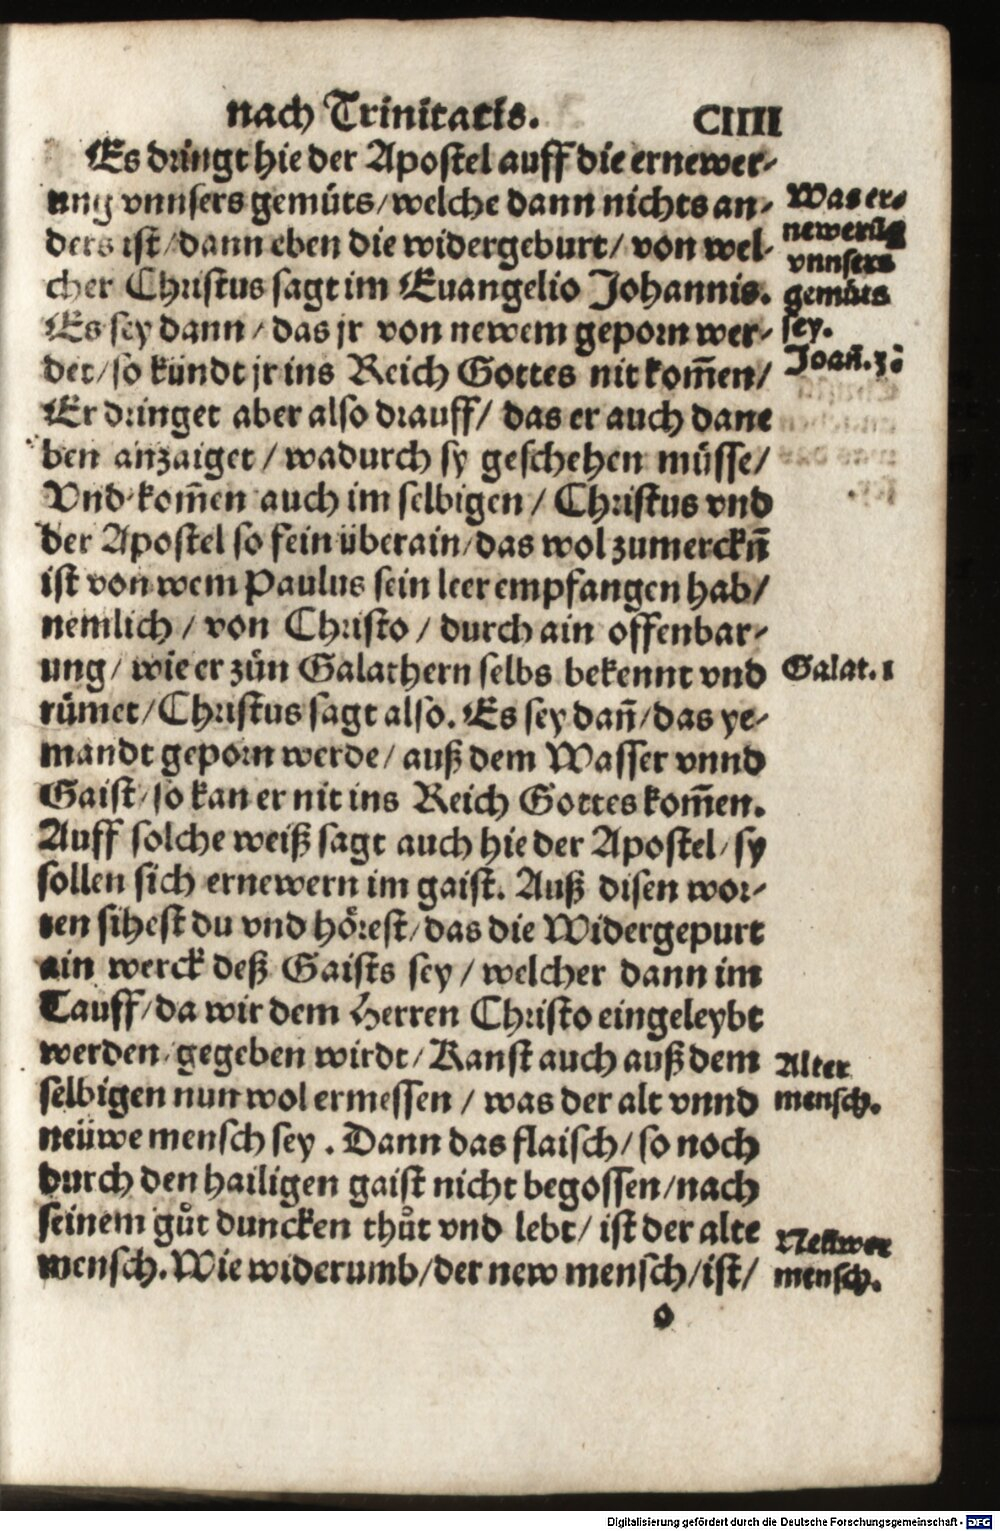 nach Trinitatis. CIIII
Es dringt hie der Apostel auff die ernewer-
ung vnnsers gemüts/welche dann nichts an-
ders ist/dann eben die widergeburt/ von wel-
cher Christus sagt im Euangelio Johannis.
Es sey dann/das jr von newem geporn wer-
det/so kündt jr ins Reich Gottes nit kom̃en/
Er dringet aber also drauff/ das er auch dane
ben anzaiget/wadurch sy geschehen müsse/
Vnd kom̃en auch im selbigen/ Christus vnd
der Apostel so fein überain/das wol zumerckñ
ist von wem Paulus sein leer empfangen hab/
nemlich/von Christo/durch ain offenbar-
ung/wie er zün Galathern selbs bekennt vnd
rümet/Christus sagt also. Es sey dañ/das ye-
mandt geporn werde/auß dem Wasser vnnd
Gaist/so kan er nit ins Reich Gottes kom̃en.
Auff solche weiß sagt auch hie der Apostel/sy
sollen sich ernewern im gaist. Auß disen wor-
ten sihest du vnd hörest/das die Widergepurt
ain werck deß Gaists sey/welcher dann im
Tauff/da wir dem Herren Christo eingeleybt
werden/gegeben wirdt/Kanst auch auß dem
selbigen nun wol ermessen/was der alt vnnd
neüwe mensch sey. Dann das flaisch/so noch
durch den hailigen gaist nicht begossen/nach
seinem gůt duncken thůt vnd lebt/ist der alte
mensch. Wie widerumb/der new mensch/ist/
o
Was er-
newerũg
vnnsers
gemüts
sey.
Joañ. 3.
Galat. 1
Alter
mensch.
Neüwer
mensch.
Digitalisierung gefördert durch die Deutsche Forschungsgemeinschaft - DFG